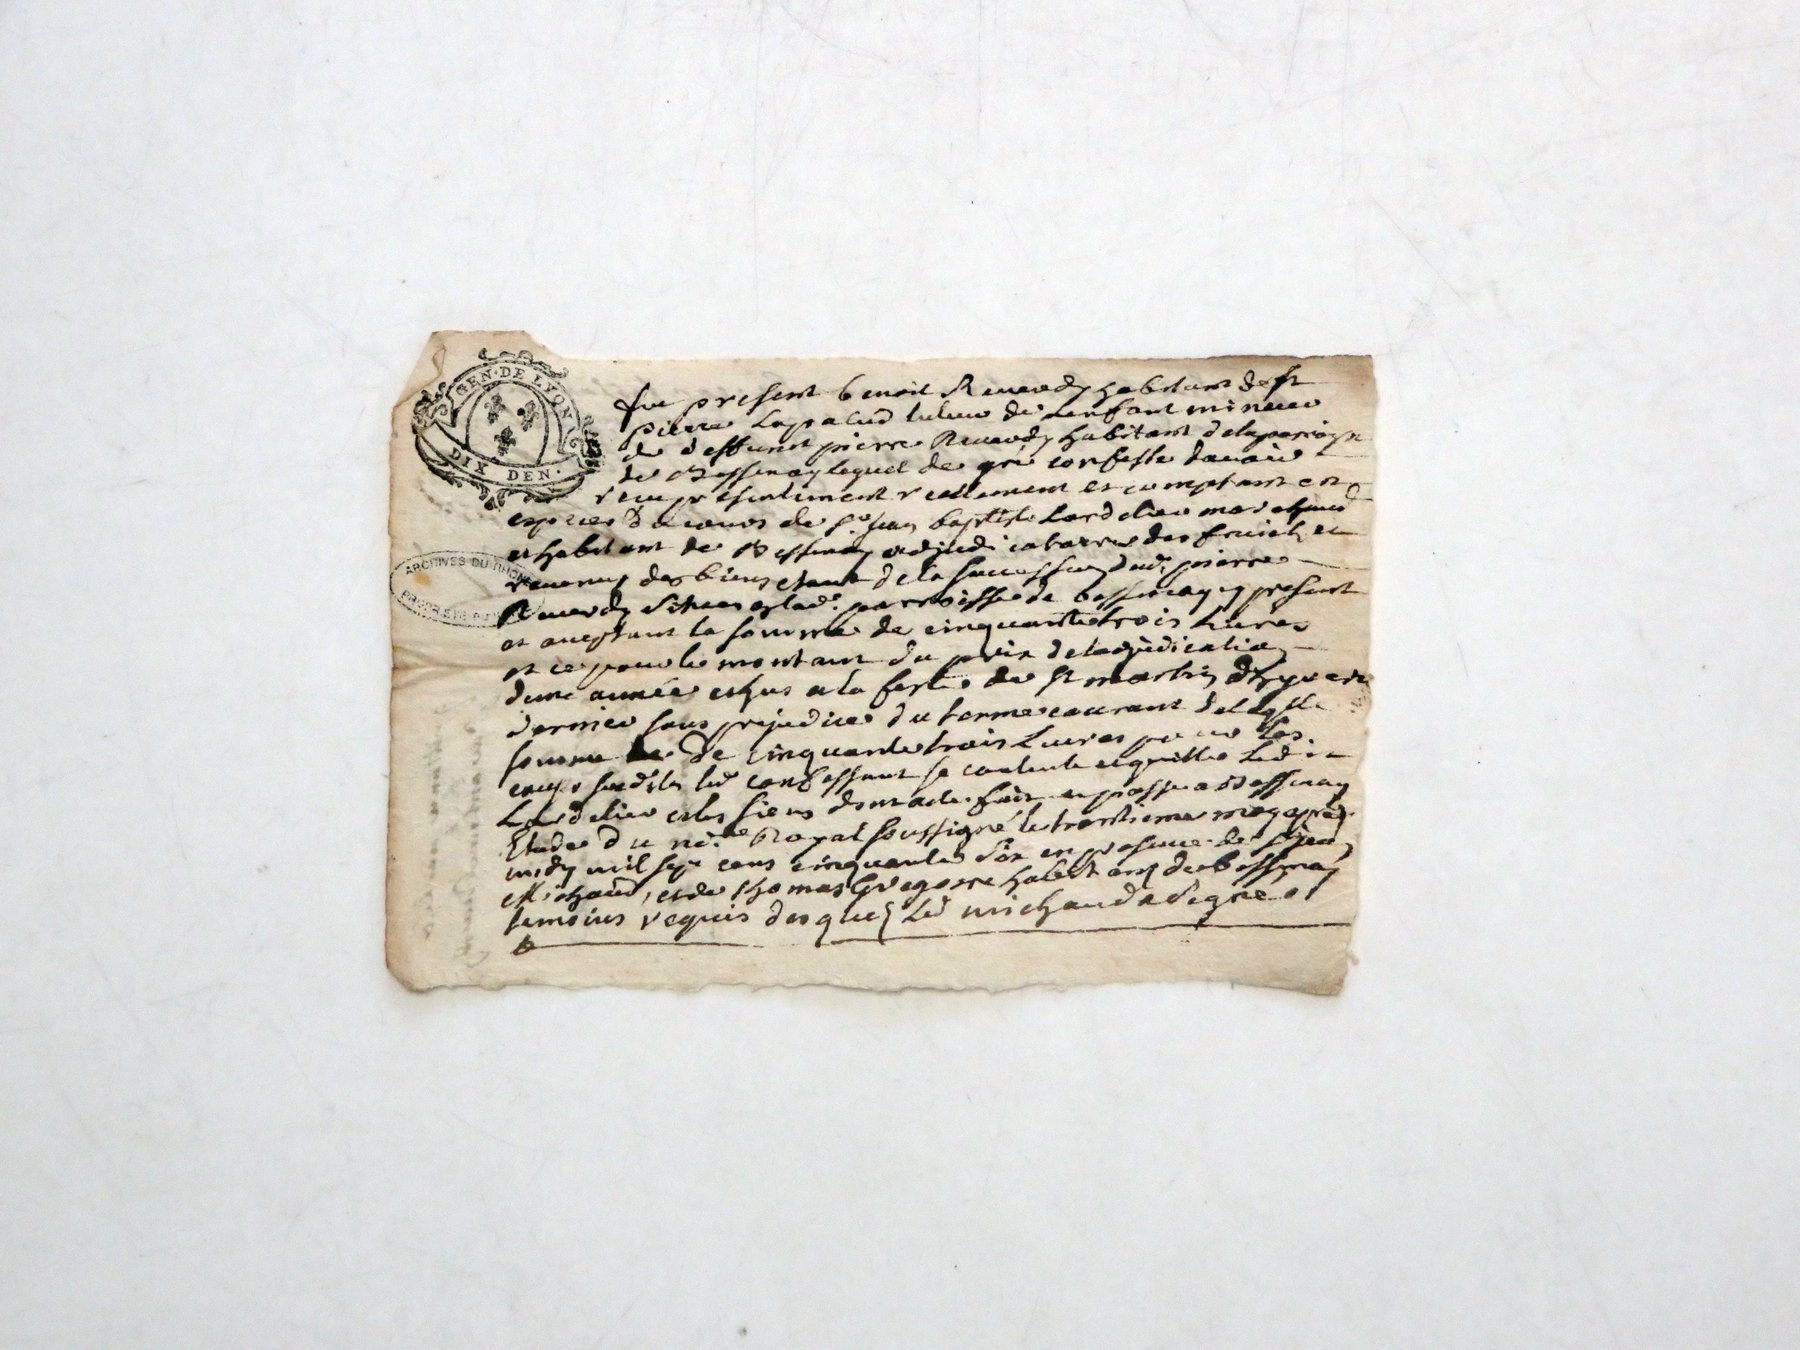 GEN·DE LYON
DIX DEN·
ARCHIVES DU RHONE
fut present benoit Reverdy habitant de st
pierre Lapalud tuteur de lenfant mineur
de deffunt pierre Reverdy habitant de la parroisse
de Bessenay lequel de gré confesse davoir
receu presentement reellement et comptant en
especes de cours de sr. jean baptiste Lardelier marchand
et habitant de Bessenay adjudicataire des fruits et
revenus des biens de la succession dud. pierre
Reverdy situes lad. parroisse de bessenay present
et aceptant la somme de cinquante trois Livres
et ce pour le montant du prix de ladjudication
dune année echue a la feste de st martin dhyver
dernier sans prejudice du terme courant de laqlle
somme de cinquante trois Livres pour les
causes susdites led confessant se contente et quitte led
Lardelier et les siens dont acte fait et passé a Bessenay
Etude du no.re Royal soussigné le trentieme may apres
midy mil sept cens cinquante six en presence de sr jean
Michaud, et de thomas Gregoire habitans de bessenay
temoins requis desquels led michaud a signé